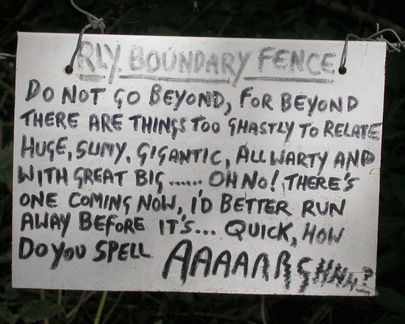 RLY BOUNDARY FENCE
DO NOT GO BEYOND, FOR BEYOND
THERE ARE THINGS TOO GHASTLY TO RELATE
HUGE, SLIMY, GIGANTIC, ALL WARTY AND
WITH GREAT BIG...... OH NO! THERE'S
ONE COMING NOW, I'D BETTER RUN
AWAY BEFORE IT'S... QUICK, HOW
DO YOU SPELL AAAAARRGHHH?